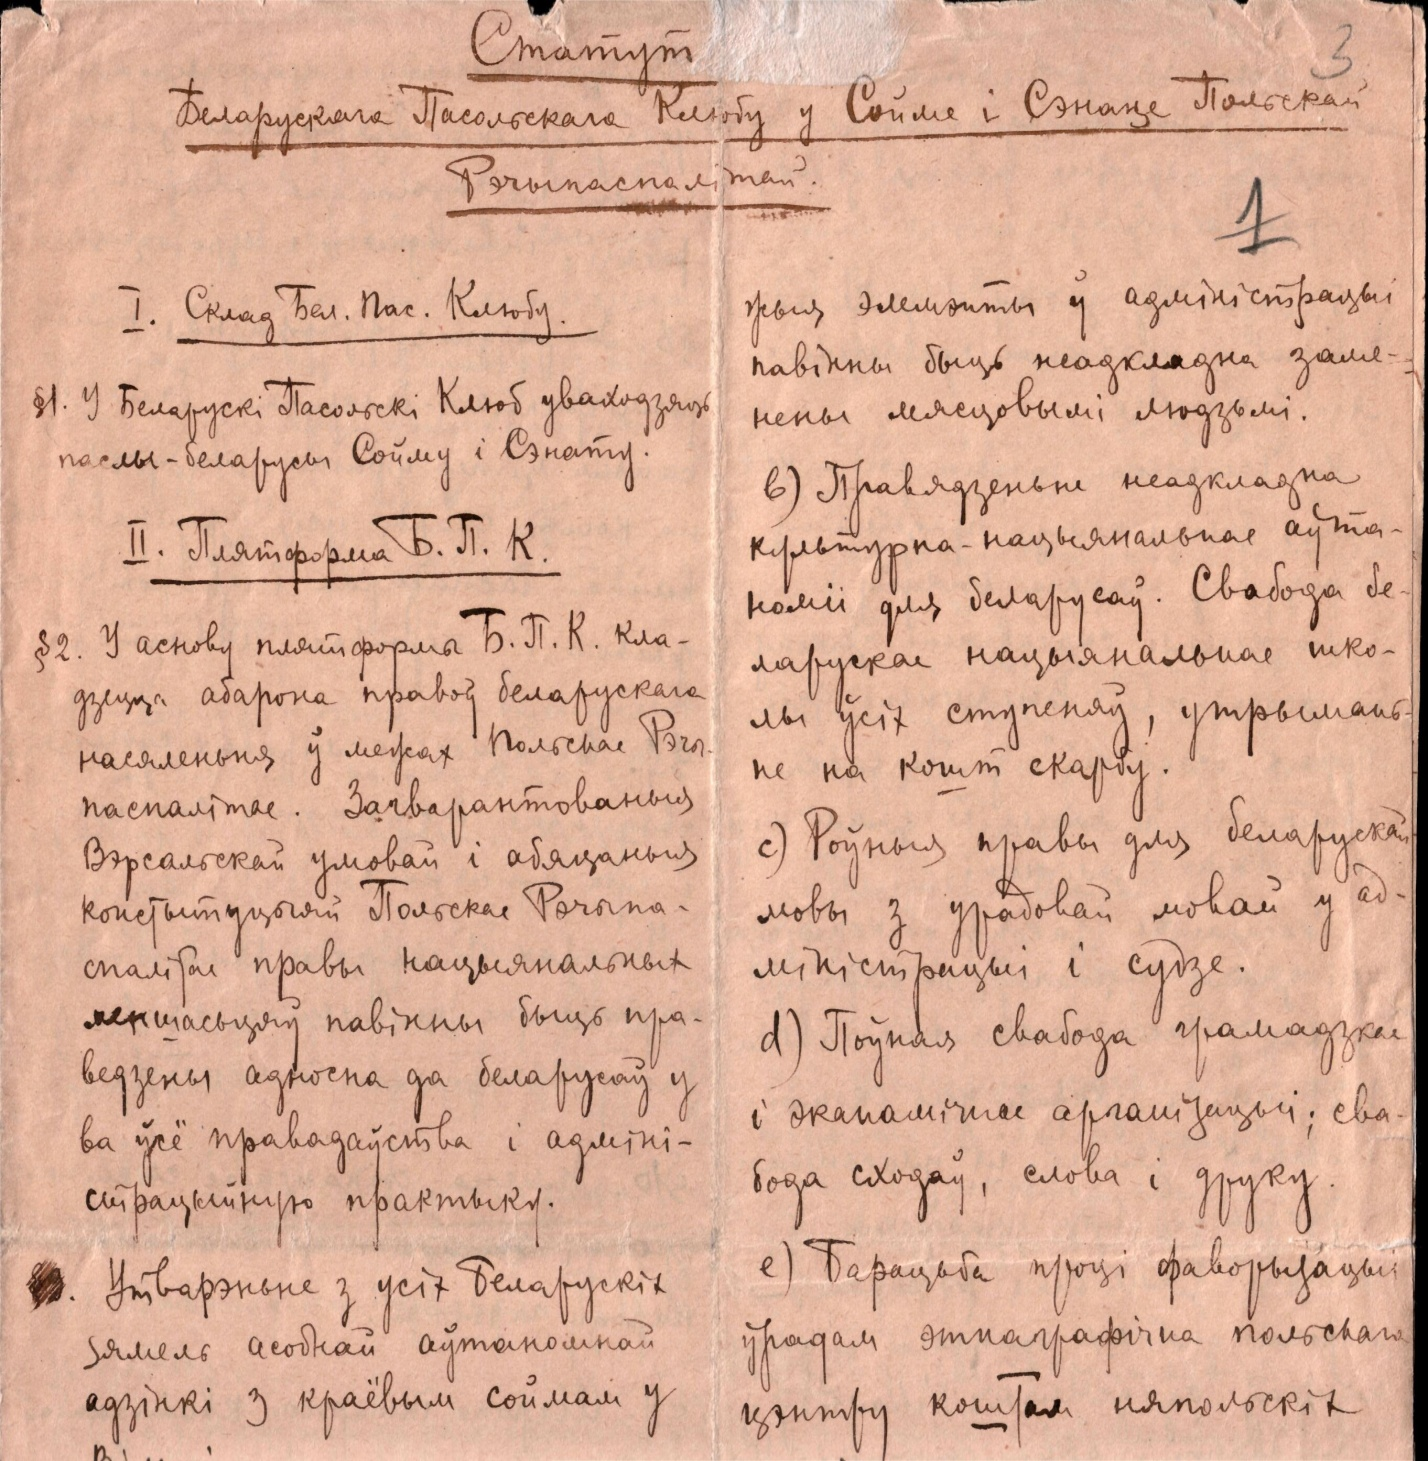 3
Статут
Беларускага Пасольскага Клюбу у Сойме і Сэнаце Польскай
Рэчыпаспалітай.
1
I. Склад Бел. Пас. Клюбу.
§1. У Беларускі Пасольскі Клюб уваходзяць
паслы-беларусы Сойму і Сэнату.
II. Плятформа Б. П. К.
§2. У аснову плятформы Б. П. К. кла-
дзецца абарона правоў беларускага
насяленьня ў межах Польскае Рэчы-
паспалітае. Загварантованыя
Вэрсальскай умовай і абяцаныя
констытуцыяй Польскае Рэчыпа-
спалітае правы нацыянальных
меншасьцяў павінны быць пра-
ведзены адносна да беларусаў у
ва ўсё правадаўства і адміні-
страцыйную практыку.
Утварэньне з усіх беларускіх
зямель асобнай аўтаномнай
адзінкі з краёвым соймам у
жыя элемэнты ў адміністрацыі
павінны быць неадкладна заме-
нены мясцовымі людзьмі.
b) Правядзеньне неадкладна
культурна-нацыянальнае аўта-
номіі для беларусаў. Свабода бе-
ларускае нацыянальнае шко-
лы ўсіх ступеняў, утрымань-
не на кошт скарбу.
c) Роўныя правы для беларускай
мовы з урадовай мовай у ад-
міністрацыі і судзе.
d) Поўная свабода грамадзкае
і экапамічнае арганізацыі; сва-
бода сходаў, слова і друку.
e) Барацьба проці фаворызацыі
ўрадам этнаграфічна польскага
цэнтру коштам няпольскіх